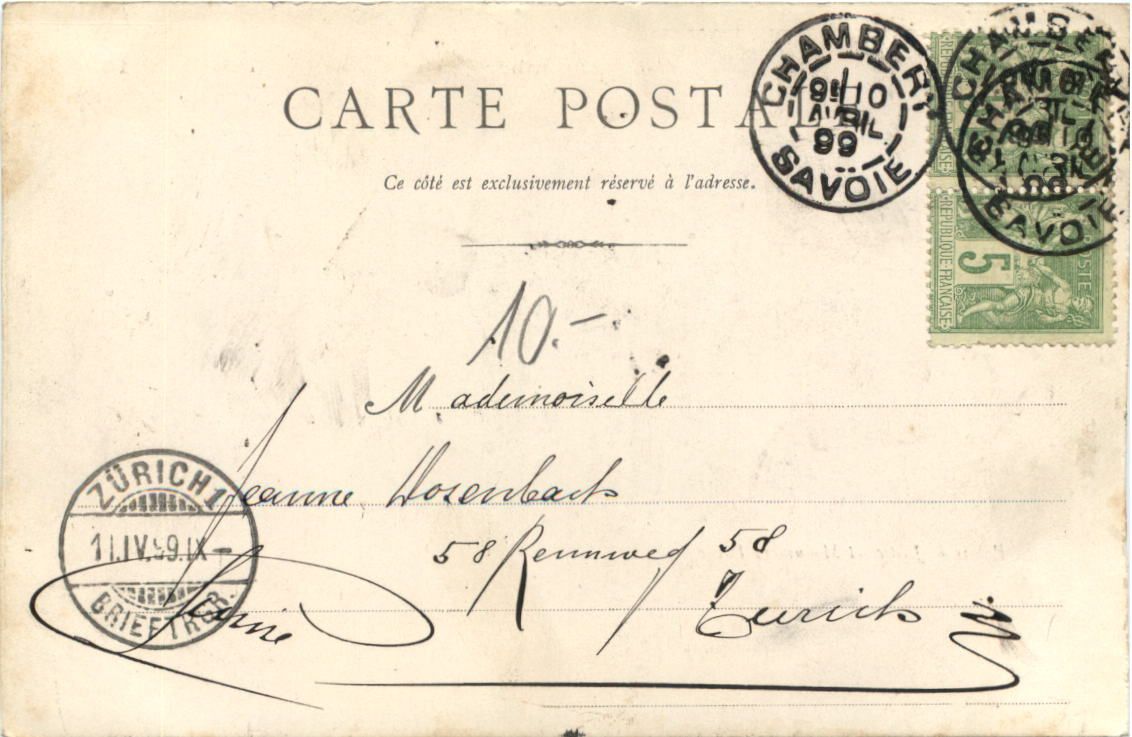 CARTE POSTALE
CHAMBERY
9E 10
AVRIL
99
SAVOIE
Ce côté est exclusivement réservé à l'adresse.
RÉPUBLIQUE FRANÇAISE
5
POSTE
10.-
Mademoiselle
Jeanne Dosenbach
58 Rennweg 58
Zurich
ZÜRICH 1
11.IV.99.IX-
BRIEFTRGR.